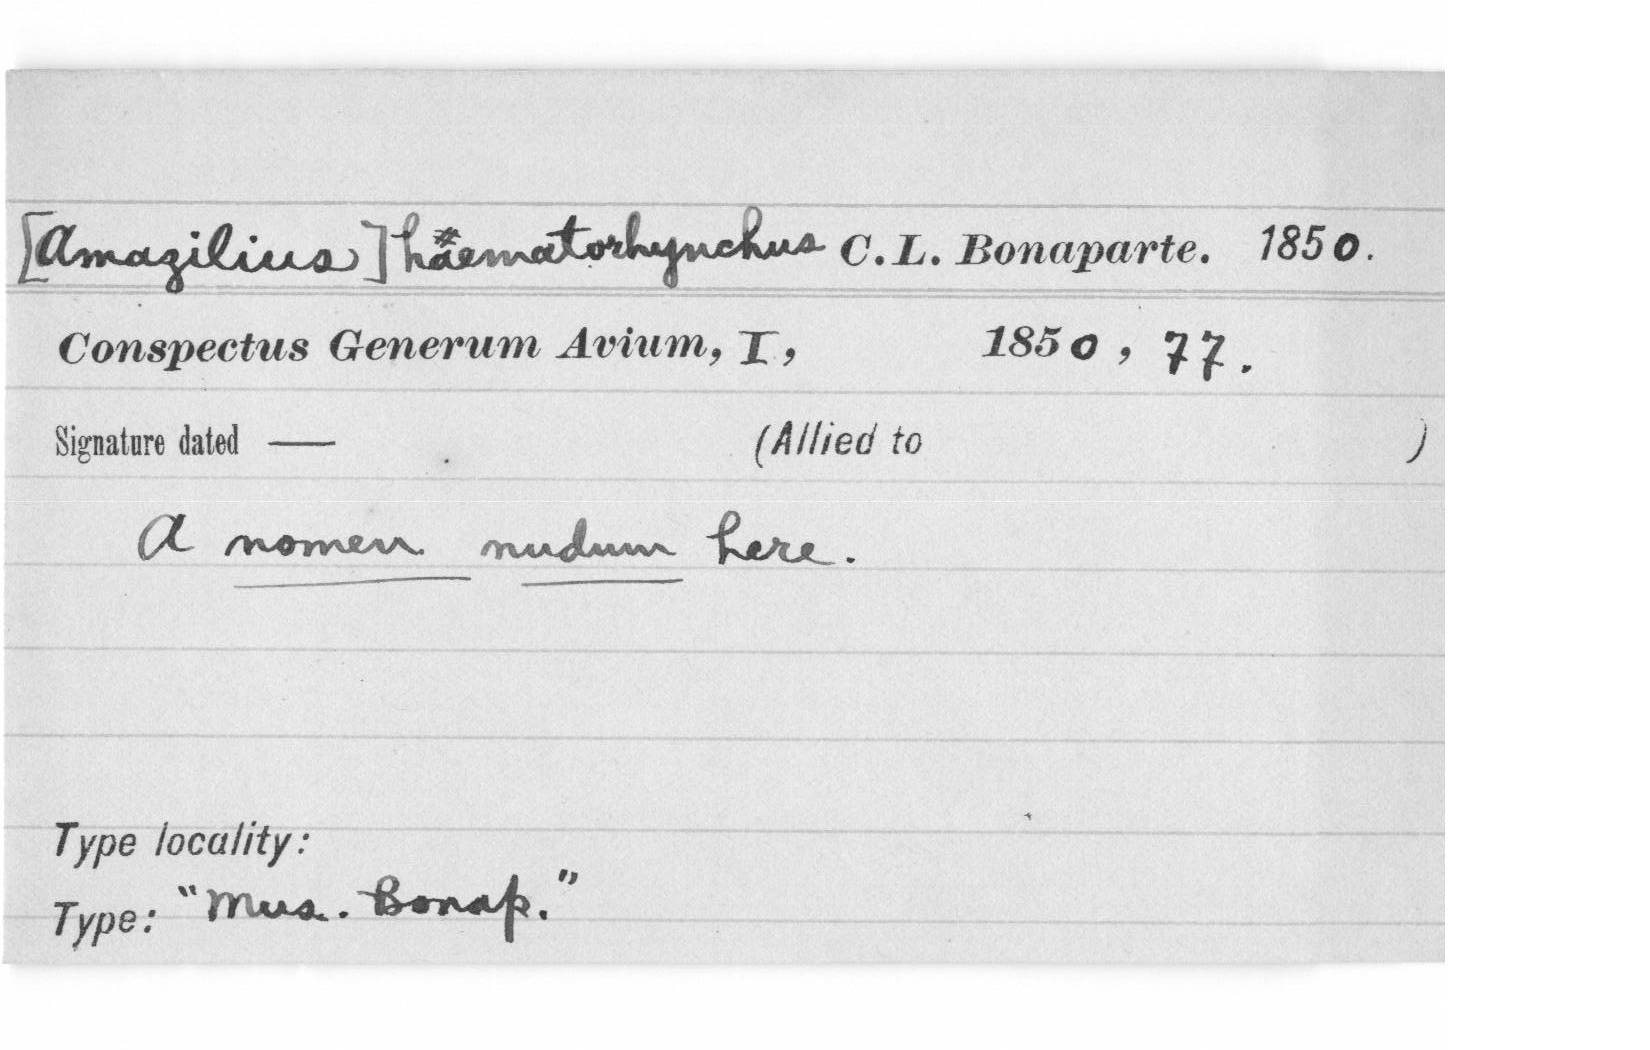 [Amazilius] haematorhynchus C. L. Bonaparte. 1850.
Conspectus Generum Avium, I, 1850, 77.
Signature dated — (Allied to )
A nomen nudum here.
Type locality:
Type: "Mus. Bonap."